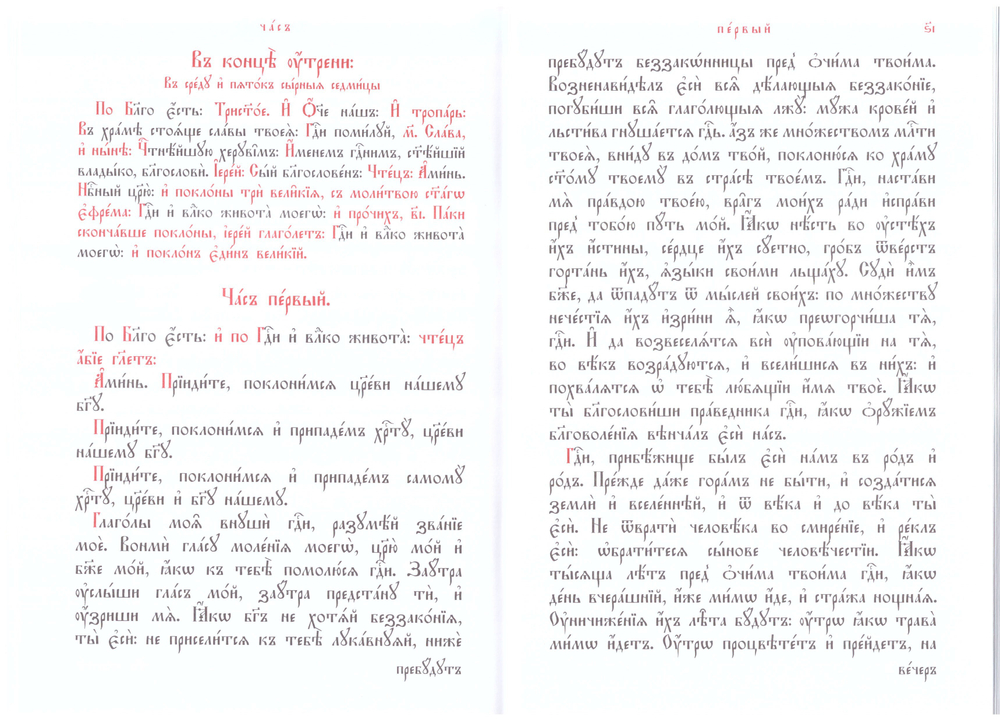 ча́съ
Въ концѣ̀ ᲂу҆́трени:
Въ сре́дꙋ и҆ пѧто́къ сы́рныѧ седми́цы
По Бл҃го є҆́сть: Трист҃о́е. И҆ Ѻ҆́ч҃е на́шъ: И҆ тропа́рь:
Въ хра́мѣ стоѧ́ще сла́вы твоеѧ̀: Гдⷭ҇и поми́лꙋй, м҃. Сла́ва,
и҆ ны́нѣ: Чⷭ҇тнѣ́йшꙋю херꙋві̑мъ: И҆́менемъ гдⷭ҇нимъ, ст҃ѣ́йшїй
влады́ко, бл҃гословѝ. І҆ере́й: Сы́й бл҃гослове́нъ: Чте́цъ: А҆ми́нь.
Нбⷭ҇ный цр҃ю̀: и҆ покло́ны трѝ вели̑кїѧ, съ моли́твою ст҃а́гѡ
є҆фре́ма: Гдⷭ҇и и҆ влⷣко живота̀ моегѡ̀: и҆ про́чихъ, в҃і. Па́ки
сконча́вше покло́ны, і҆ере́й глаго́летъ: Гдⷭ҇и и҆ влⷣко живота̀
моегѡ̀: и҆ покло́нъ є҆ди́нъ вели́кїй.
Ча́съ пе́рвый.
По Бл҃го є҆́сть: и҆ по Гдⷭ҇и и҆ влⷣко живота̀: чте́цъ
а҆́бїе гл҃етъ:
А҆ми́нь. Прїиди́те, поклони́мсѧ цр҃е́ви на́шемꙋ
бг҃ꙋ.
Прїиди́те, поклони́мсѧ и҆ припаде́мъ хрⷭ҇тꙋ̀, цр҃е́ви
на́шемꙋ бг҃ꙋ.
Прїиди́те, поклони́мсѧ и҆ припаде́мъ самомꙋ̀
хрⷭ҇тꙋ̀, цр҃е́ви и҆ бг҃ꙋ на́шемꙋ.
Глаго́лы моѧ̑ внꙋшѝ гдⷭ҇и, разꙋмѣ́й зва́нїе
моѐ. Вонмѝ гла́сꙋ моле́нїѧ моегѡ̀, цр҃ю̀ мо́й и҆
бж҃е мо́й, ꙗ҆́кѡ къ тебѣ̀ помолю́сѧ гдⷭ҇и. Заꙋ́тра
ᲂу҆слы́ши гла́съ мо́й, заꙋ́тра предста́нꙋ тѝ, и҆
ᲂу҆́зриши мѧ̀. Ꙗ҆́кѡ бг҃ъ не хотѧ́й беззако́нїѧ,
ты̀ є҆сѝ: не присели́тсѧ къ тебѣ̀ лꙋка́внꙋѧй, нижѐ
пребꙋ́дꙋтъ
пе́рвый
ѕ҃і
пребꙋ́дꙋтъ беззакѡ́нницы пред̾ ѻ҆чи́ма твои́ма.
Возненави́дѣлъ є҆сѝ всѧ̑ дѣ́лающыѧ беззако́нїе,
погꙋби́ши всѧ̑ глаго́лющыѧ лжꙋ̀: мꙋ́жа крове́й и҆
льсти́ва гнꙋша́етсѧ гдⷭ҇ь. а҆́зъ же мно́жествомъ млⷭ҇ти
твоеѧ̀, вни́дꙋ въ до́мъ тво́й, поклоню́сѧ ко хра́мꙋ
ст҃о́мꙋ твоемꙋ̀ въ стра́сѣ твое́мъ. Гдⷭ҇и, наста́ви
мѧ̀ пра́вдою твое́ю, вра̑гъ мои́хъ ра́ди и҆спра́ви
пред̾ тобо́ю пꙋ́ть мо́й. Ꙗ҆́кѡ нѣ́сть во ᲂу҆стѣ́хъ
и҆́хъ и҆́стины, се́рдце и҆́хъ сꙋ́етно, гро́бъ ѿве́рстъ
горта́нь и҆́хъ, ѧ҆зы́ки свои́ми льща́хꙋ. Сꙋдѝ и҆̀мъ
бж҃е, да ѿпадꙋ́тъ ѿ мы́слей свои́хъ: по мно́жествꙋ
нече́стїѧ и҆́хъ и҆зри́ни ѧ҆̀, ꙗ҆́кѡ прешгорчи́ша тѧ̀,
гдⷭ҇и. И҆ да возвеселѧ́тсѧ всѝ ᲂу҆пова́ющїи на тѧ̀,
во вѣ́къ возра́дꙋютсѧ, и҆ всели́шисѧ въ ни́хъ: и҆
похва́лѧтсѧ ѡ҆ тебѣ̀ лю́бѧщїи и҆́мѧ твоѐ. Ꙗ҆́кѡ
ты̀ бл҃гослови́ши пра́ведника гдⷭ҇и, ꙗ҆́кѡ ѻ҆рꙋ́жїемъ
бл҃говоле́нїѧ вѣнча́лъ є҆сѝ на́съ.
Гдⷭ҇и, прибѣ́жище бы́лъ є҆сѝ на́мъ въ ро́дъ и҆
ро́дъ. Пре́жде да́же гора́мъ не бы́ти, и҆ созда́тисѧ
землѝ и҆ вселе́ннѣй, и҆ ѿ вѣ́ка и҆ до вѣ́ка ты̀
є҆сѝ. Не ѿвратѝ человѣ́ка во смире́нїе, и҆ ре́клъ
є҆сѝ: ѡ҆брати́тесѧ сы́нове человѣ́честїи. Ꙗ҆́кѡ
ты́сѧща лѣ́тъ пред̾ ѻ҆чи́ма твои́ма гдⷭ҇и, ꙗ҆́кѡ
де́нь вчера́шнїй, и҆́же ми́мѡ и҆́де, и҆ стра́жа нощна́ѧ.
Оу҆ничиже́нїѧ и҆́хъ лѣ̑та бꙋ́дꙋтъ: ᲂу҆́трѡ ꙗ҆́кѡ трава̀
ми́мѡ и҆́детъ. Оу҆́трѡ процвѣте́тъ и҆ пре́йдетъ, на
ве́черъ